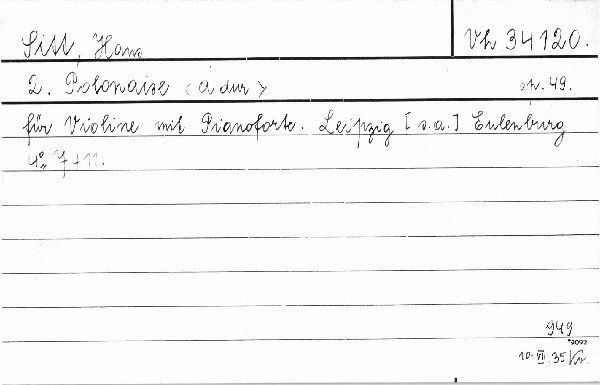 Sitt, Hans
Vh 34120.
2. Polonaise <A dur> op. 49.
für Violine mit Pianoforte. Leipzig [s.a.] Eulenburg
4° 7+11.
949
*9092
10. VII. 35